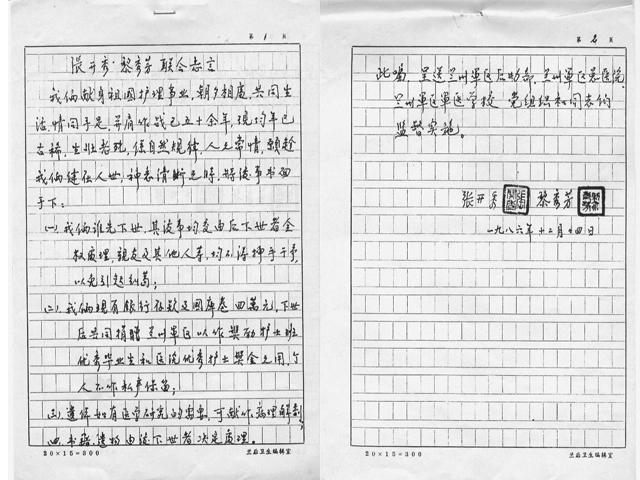 第 1 页
张开秀 黎秀芳 联合志言
我俩献身祖国护理事业,朝夕相处,共同生
活,情同手足,并肩作战已五十余年,现均年已
古稀,生壮老死,系自然规律,人之常情,愿趁
我俩健在人世,神志清晰之时,将后事书面
于下:
(一)、我俩谁先下世,其后事均交由后下世者全
权处理,亲友及其他人等,均不得插手干予,
以免引起纠葛;
(二)、我俩现有银行存款及国库卷四万元,下世
后共同捐赠兰州军区以作奖励护士班
优秀毕业生和医院优秀护士奖金之用,个
人不作私产保留;
(三)、遗体如有医学研究的需要,可献作病理解剖,
四、书籍、遗物由后下世者决定处理。
20×15=300 兰后卫生编辑室
第 2 页
此嘱,呈送兰州军区后勤部,兰州军区总医院,
兰州军区军医学校 党组织和同志们
监督实施。
张开秀 黎秀芳
一九八六年十二月十四日
20×15=300 兰后卫生编辑室